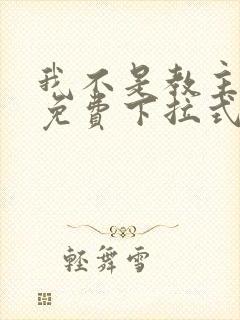 我不是教主
免費下拉式
輕舞雪